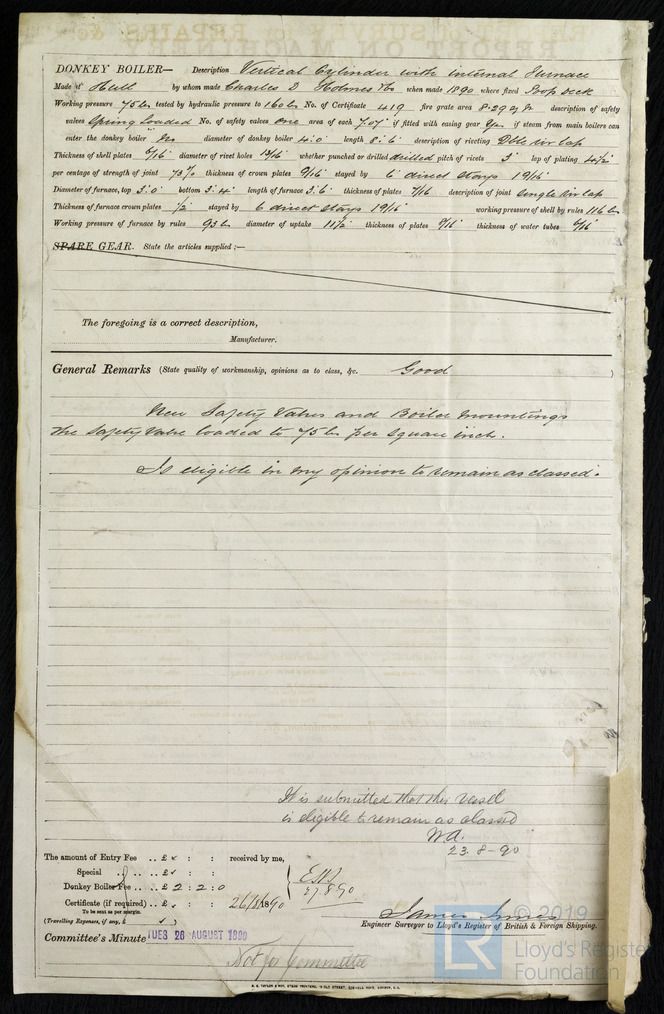 DONKEY BOILER— Description Vertical Cylinder with internal Furnace
Made at Hull by whom made Charles D Holmes & Co when made 1890 where fixed Poop Deck
Working pressure 75 lbs tested by hydraulic pressure to 160 lbs No. of Certificate 419 fire grate area 8.29 sq ft description of safety
valves Spring loaded No. of safety valves one area of each 7.07 if fitted with easing gear Yes if steam from main boilers can
enter the donkey boiler No diameter of donkey boiler 4'.0" length 8'.6" description of riveting Dble riv lap
Thickness of shell plates 6/16 diameter of rivet holes 13/16 whether punched or drilled drilled pitch of rivets 3" lap of plating 4 1/2
per centage of strength of joint 73% thickness of crown plates 9/16 stayed by 6 direct stays 1 9/16
Diameter of furnace, top 3'.0" bottom 3'.4" length of furnace 3'.6" thickness of plates 7/16 description of joint single riv lap
Thickness of furnace crown plates 1/2 stayed by 6 direct stays 1 9/16 working pressure of shell by rules 116 lbs
Working pressure of furnace by rules 93 lbs diameter of uptake 11 1/2 thickness of plates 6/16 thickness of water tubes 6/16
SPARE GEAR. State the articles supplied:—
The foregoing is a correct description,
Manufacturer.
General Remarks (State quality of workmanship, opinions as to class, &c. Good )
New Safety Valves and Boiler mountings
the Safety Valve loaded to 75 lbs per square inch.
Is eligible in my opinion to remain as classed.
It is submitted that this vessel
is eligible to remain as classed
W.A.
23.8-90
The amount of Entry Fee .. £ : : received by me,
Special .. £ : :
Donkey Boiler Fee .. £ 2 : 2 : 0
Certificate (if required) .. £ : : 26/8/1890
27.8.90
To be sent as per margin.
(Travelling Expenses, if any, £ )
James Innes
Engineer Surveyor to Lloyd's Register of British & Foreign Shipping.
Committee's Minute TUES 26 AUGUST 1890
Not for Committee
© 2019
LR Lloyd's Register
Foundation